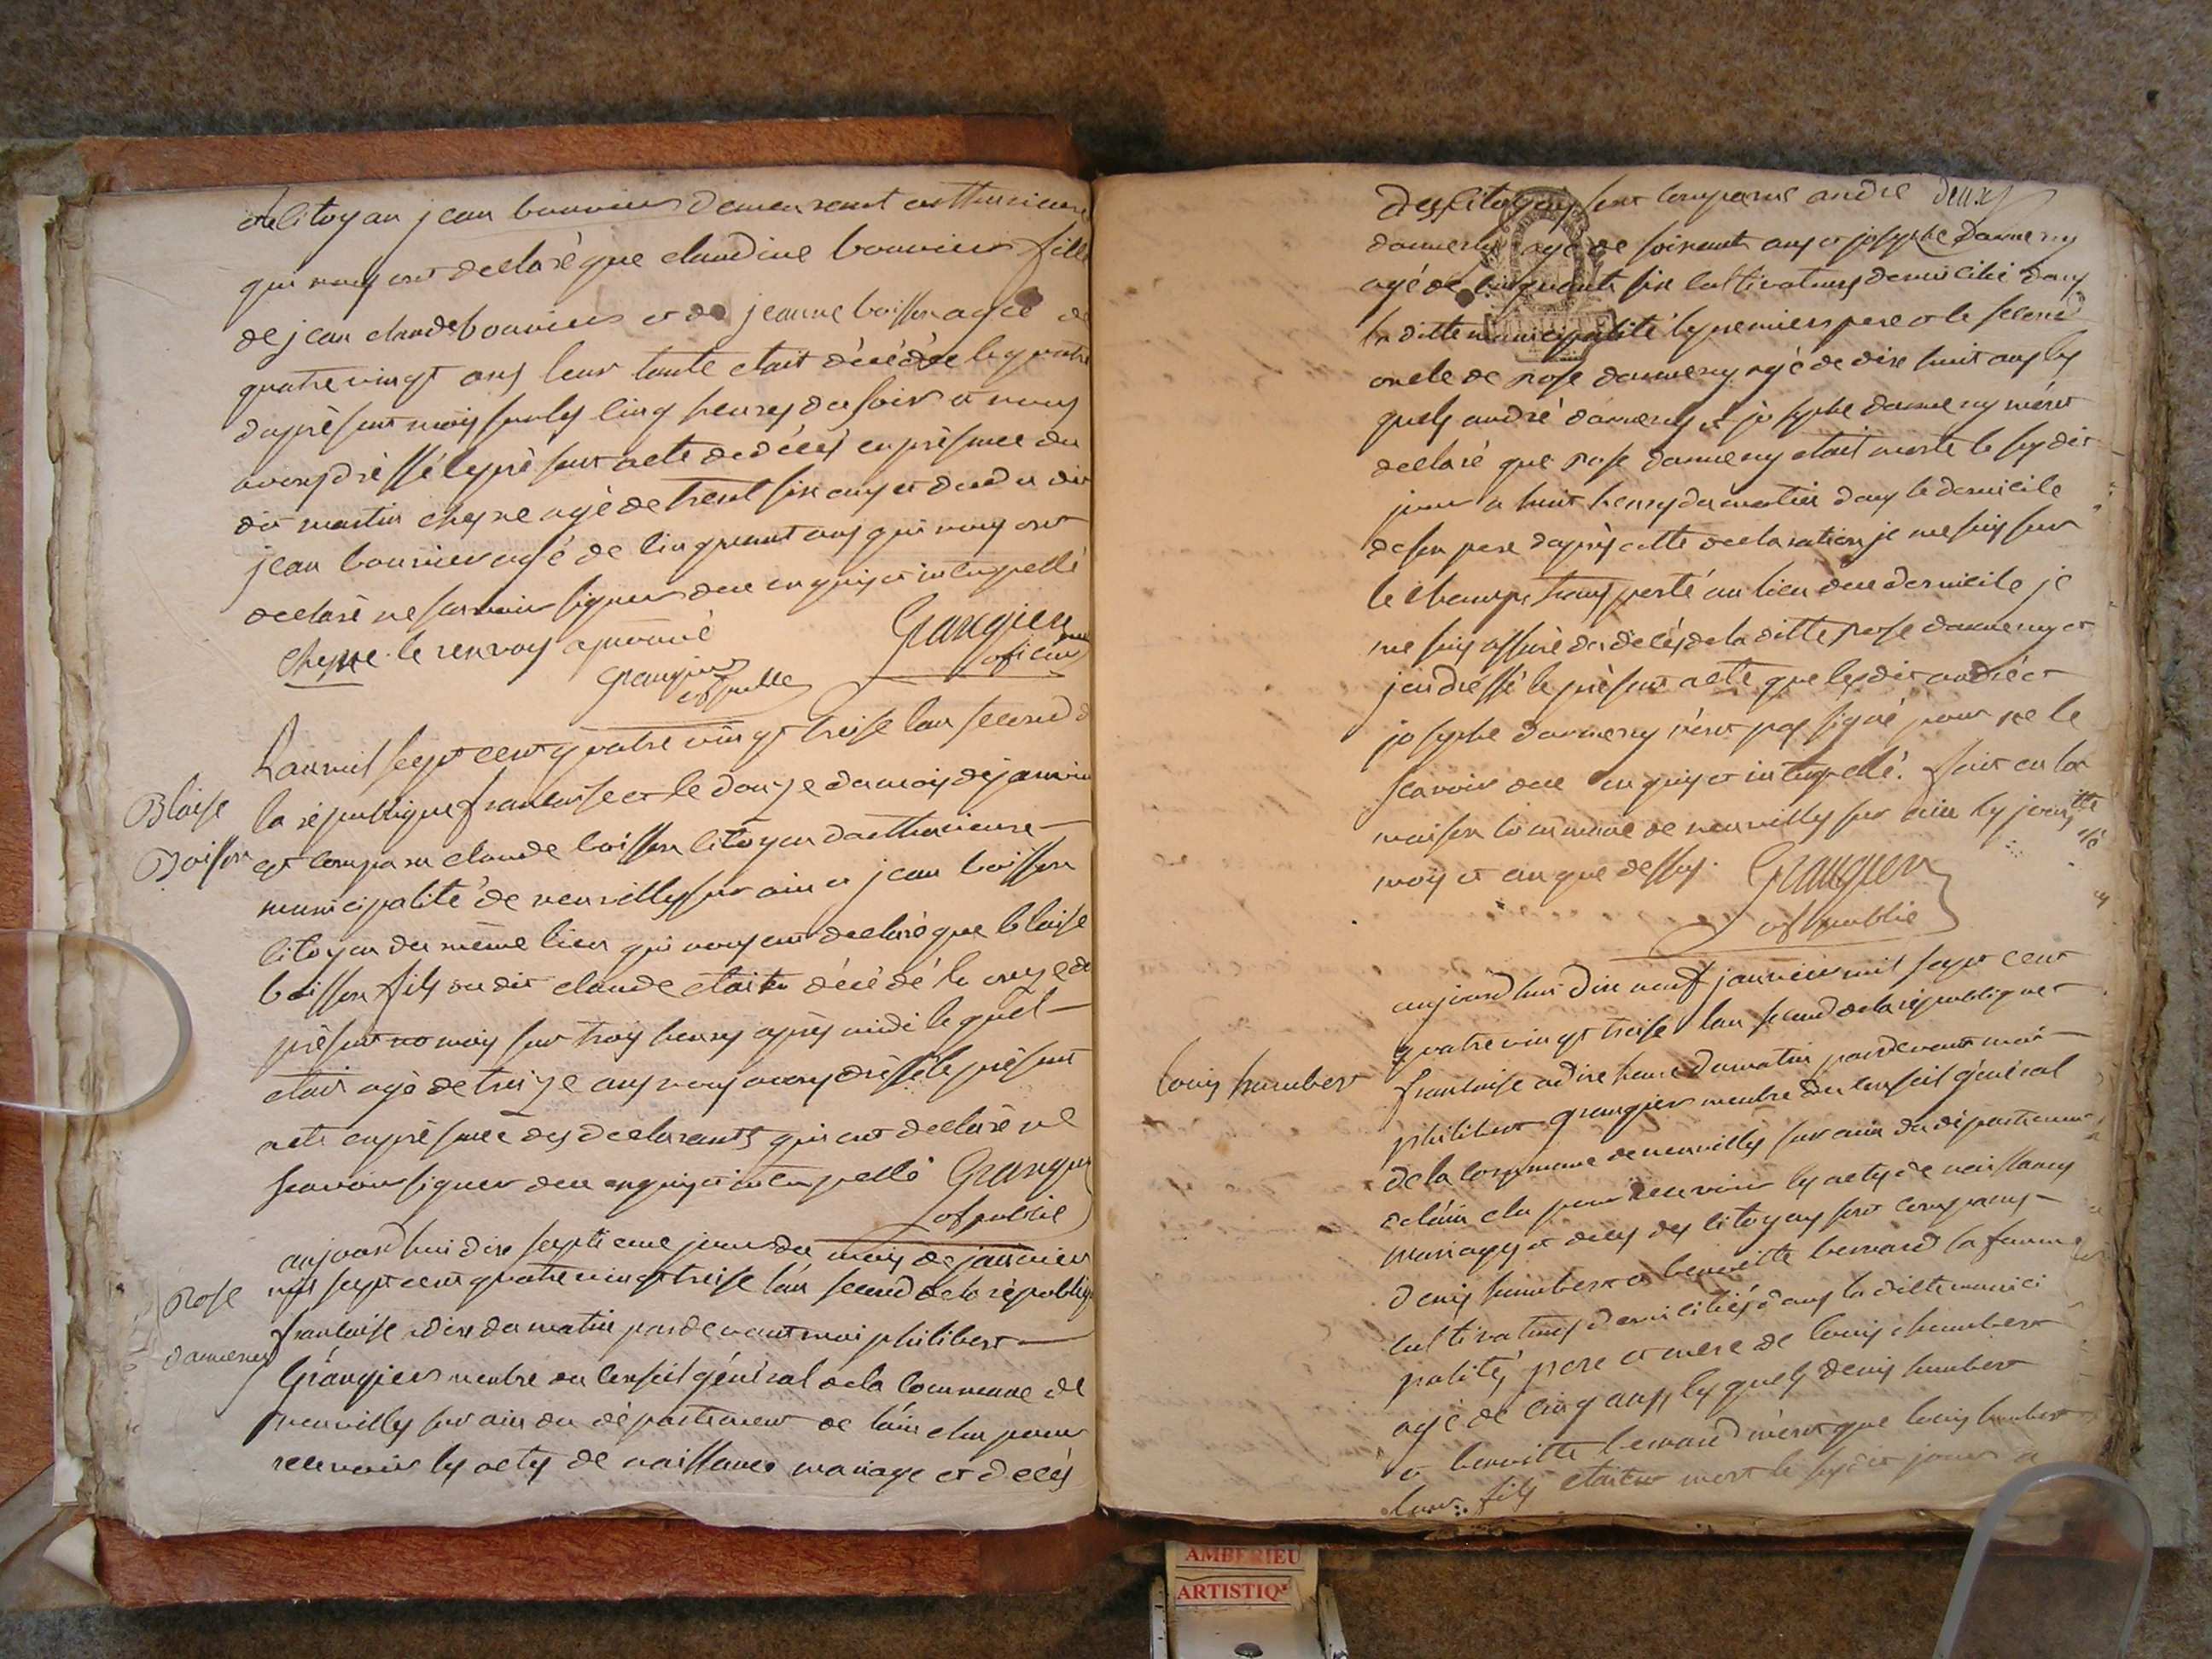 citoyan jean bouvier demeurant
qui nous ont declaré que claudine bouvier fille
de jean claude bouvier et de jeanne boisson agée de
quatrevingt ans leur tante etait décédée le quatre
du présent mois sur les cinq heures du soir et nous
avons dréssé le présent acte de décés en présence du
dit martin cheyne agé de trent six ans et du dit
jean bouvier agé de cinquant ans qui nous ont
declaré ne scavoir signer de ce enquis et interpellé
cheyne le renvoy aprouvé Grangier
Grangier
of publ
L'an mil sept cent quatre vingt treise l'an second de
Blaise
la république francaise et le douze du mois de janvier
Boisson
est comparu claude boisson citoyen
municipalité de neuville sur ain et jean boisson
citoyen du même lieu qui nous ont declaré que blaise
boisson fils du dit claude etait décédé le onze du
présent mois sur trois heures après midi le quel
etait agé de treize ans nous avons dréssé le présent
acte en présence des declarants qui ont declaré ne
scavoir signer de ce enquis et interpellé Grangier
of public
aujourd'hui dix septieme jour du mois de janvier
Rose
mil sept cent quatre vingt treise l'an second de la républiq
francaise a dix du matin pardevant moi philibert
dameney
Grangier menbre du conseil général de la commune de
neuville sur ain du département de l'ain elu pour
recevoir les actes de naissance mariage et décés
des citoyens sont comparus andré deux
dameney agé de soixante ans et josephe dameney
agé de cinquante six cultivateurs domicilié dans
la ditte municipalité le premier pere et le second
oncle de rose dameney agé de dix huit ans les
quels andré dameney et josephe dameney m'ont
declaré que rose dameney etait morte le susdit
jour a huit heures du matin dans le domicile
de son pere d'après cette declaration je me suis sur
le champ transporté au lieu de ce domicile je
me suis assuré du décés de la ditte rose dameney et
j'ai dréssé le présent acte que lesdit andré et
josephe dameney n'ont pas signé pour ne le
scavoir de ce enquis et interpellé. fait en la
maison commune de neuville sur ain les jour
mois et an que dessus. Grangier
of public
aujourd'hui dix neuf janvier mil sept cent
quatre vingt treise l'an second de la république
louis humbert
francaise a dix heure du matin pardevant moi
philibert grangier menbre du conseil général
de la commune de neuville sur ain du département
de l'ain elu pour recevoir les actes de naissances
mariages et décés des citoyens sont comparus
denis humbert et benoitte bernard sa femme
cultivateurs domiciliés dans la ditte munici
palité, pere et mere de louis humbert
agé de cinq ans, les quels denis humbert
et benoitte bernard m'ont que louis humbert
leur fils etait mort le susdit jour a
AMBERIEU
ARTISTIQ